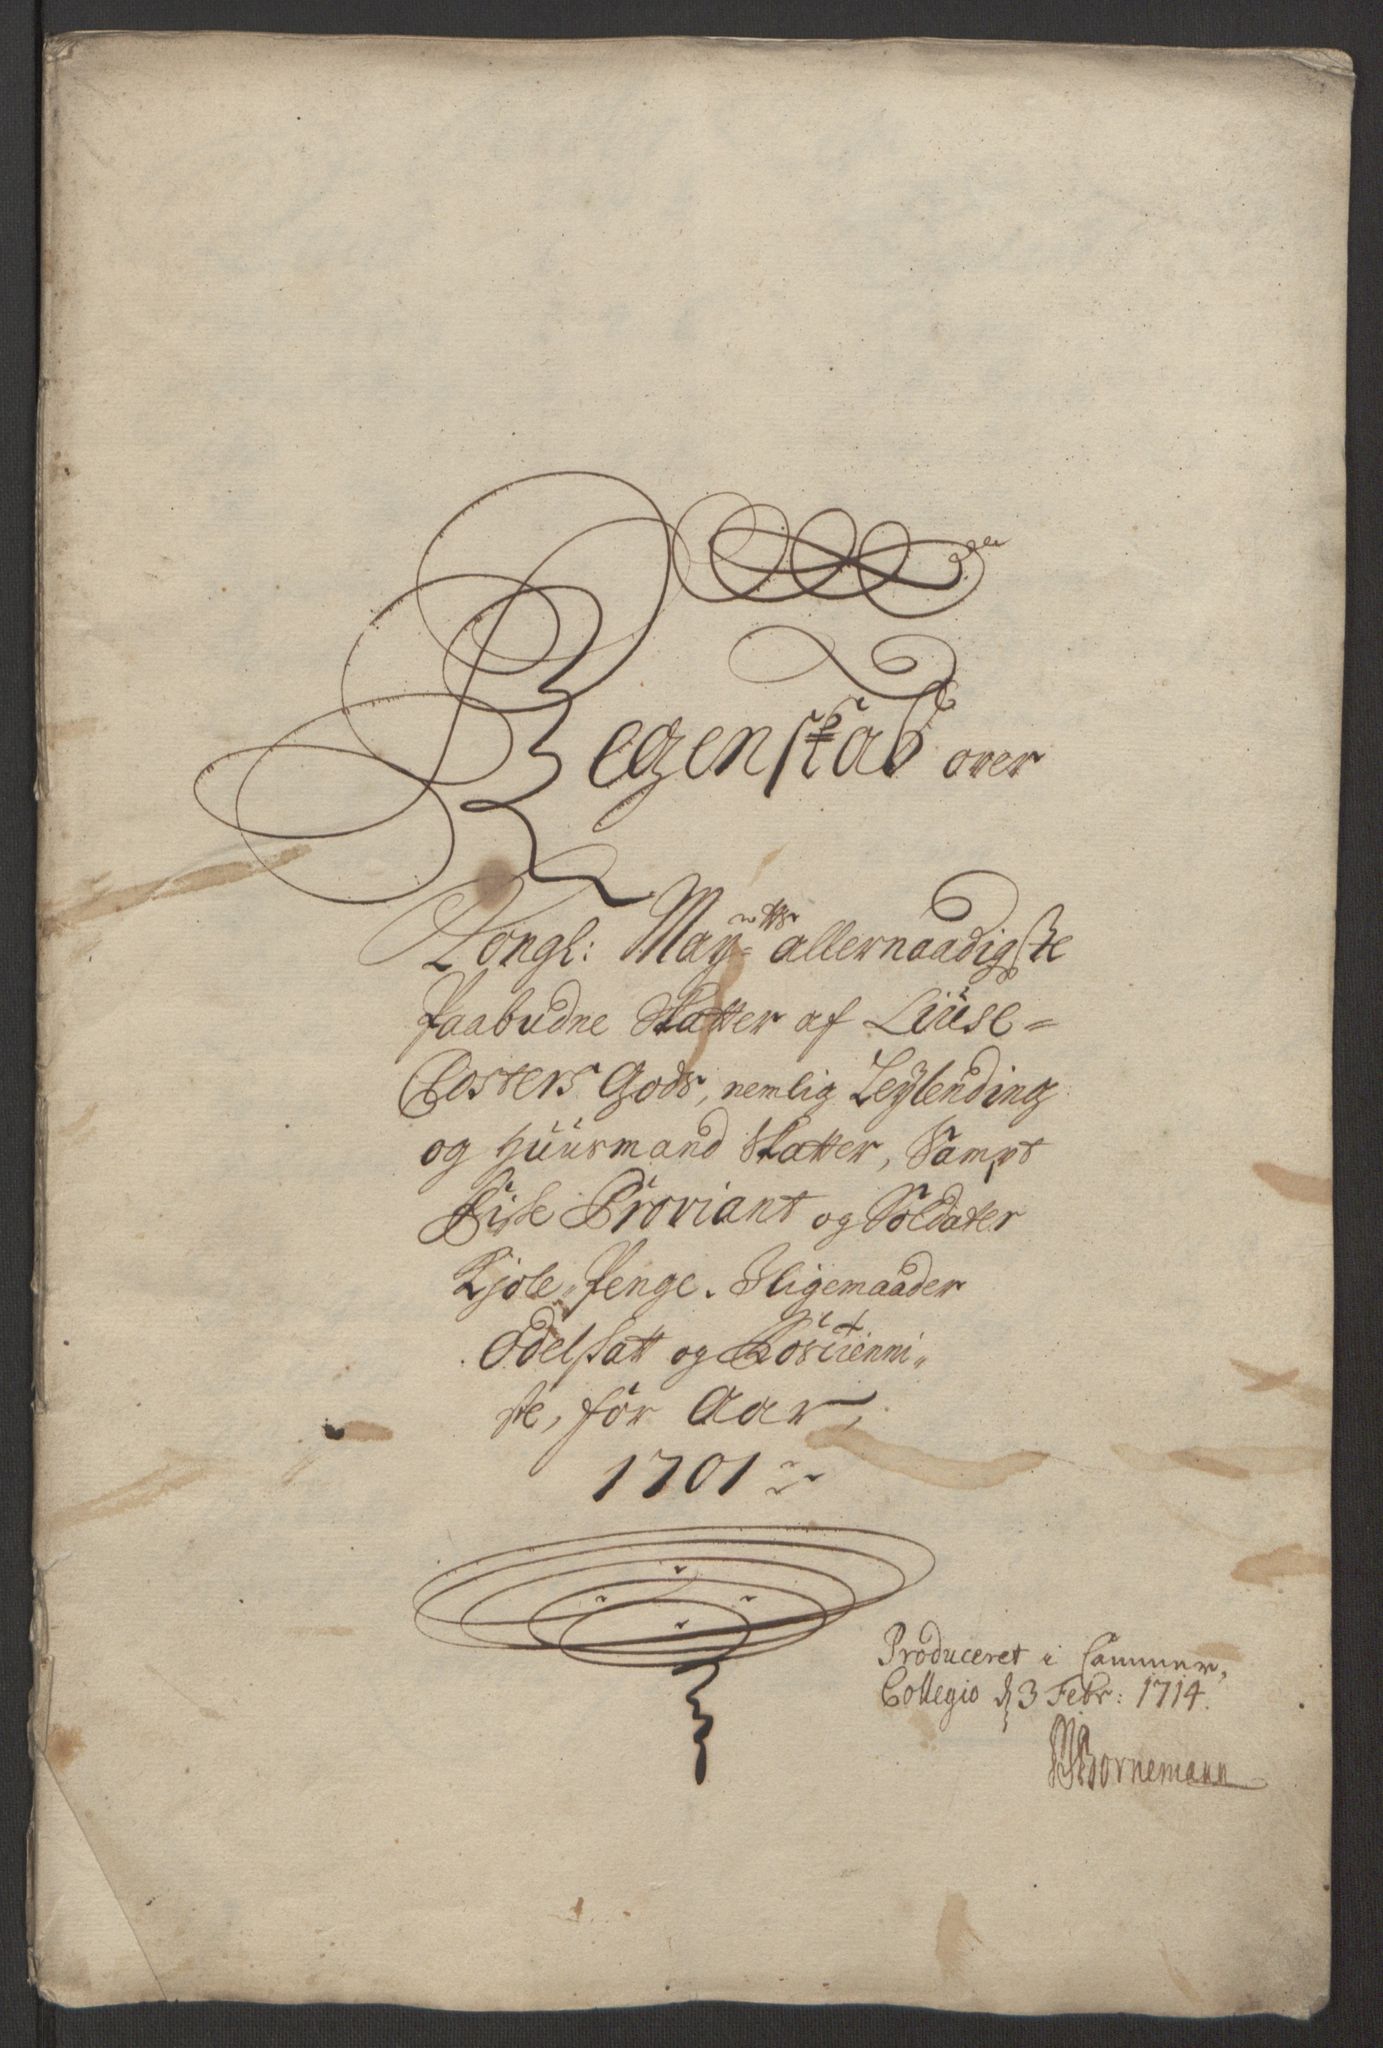 Regenskab over
Kongl: Mayꝭ-tts allernaadigste
Paabudne Skatter af Liüse-
Closters Gods, nemlig Leylending
og Huusmand Skatter, Sampt
Fiske Proviant og Soldater
Kjole-Penge. Iligemaader
Odelskatt og Rostienni-
ste, for Aar,
1701
Produceret i Cammer,
Collegio d 3 Febr: 1714.
Bornemann